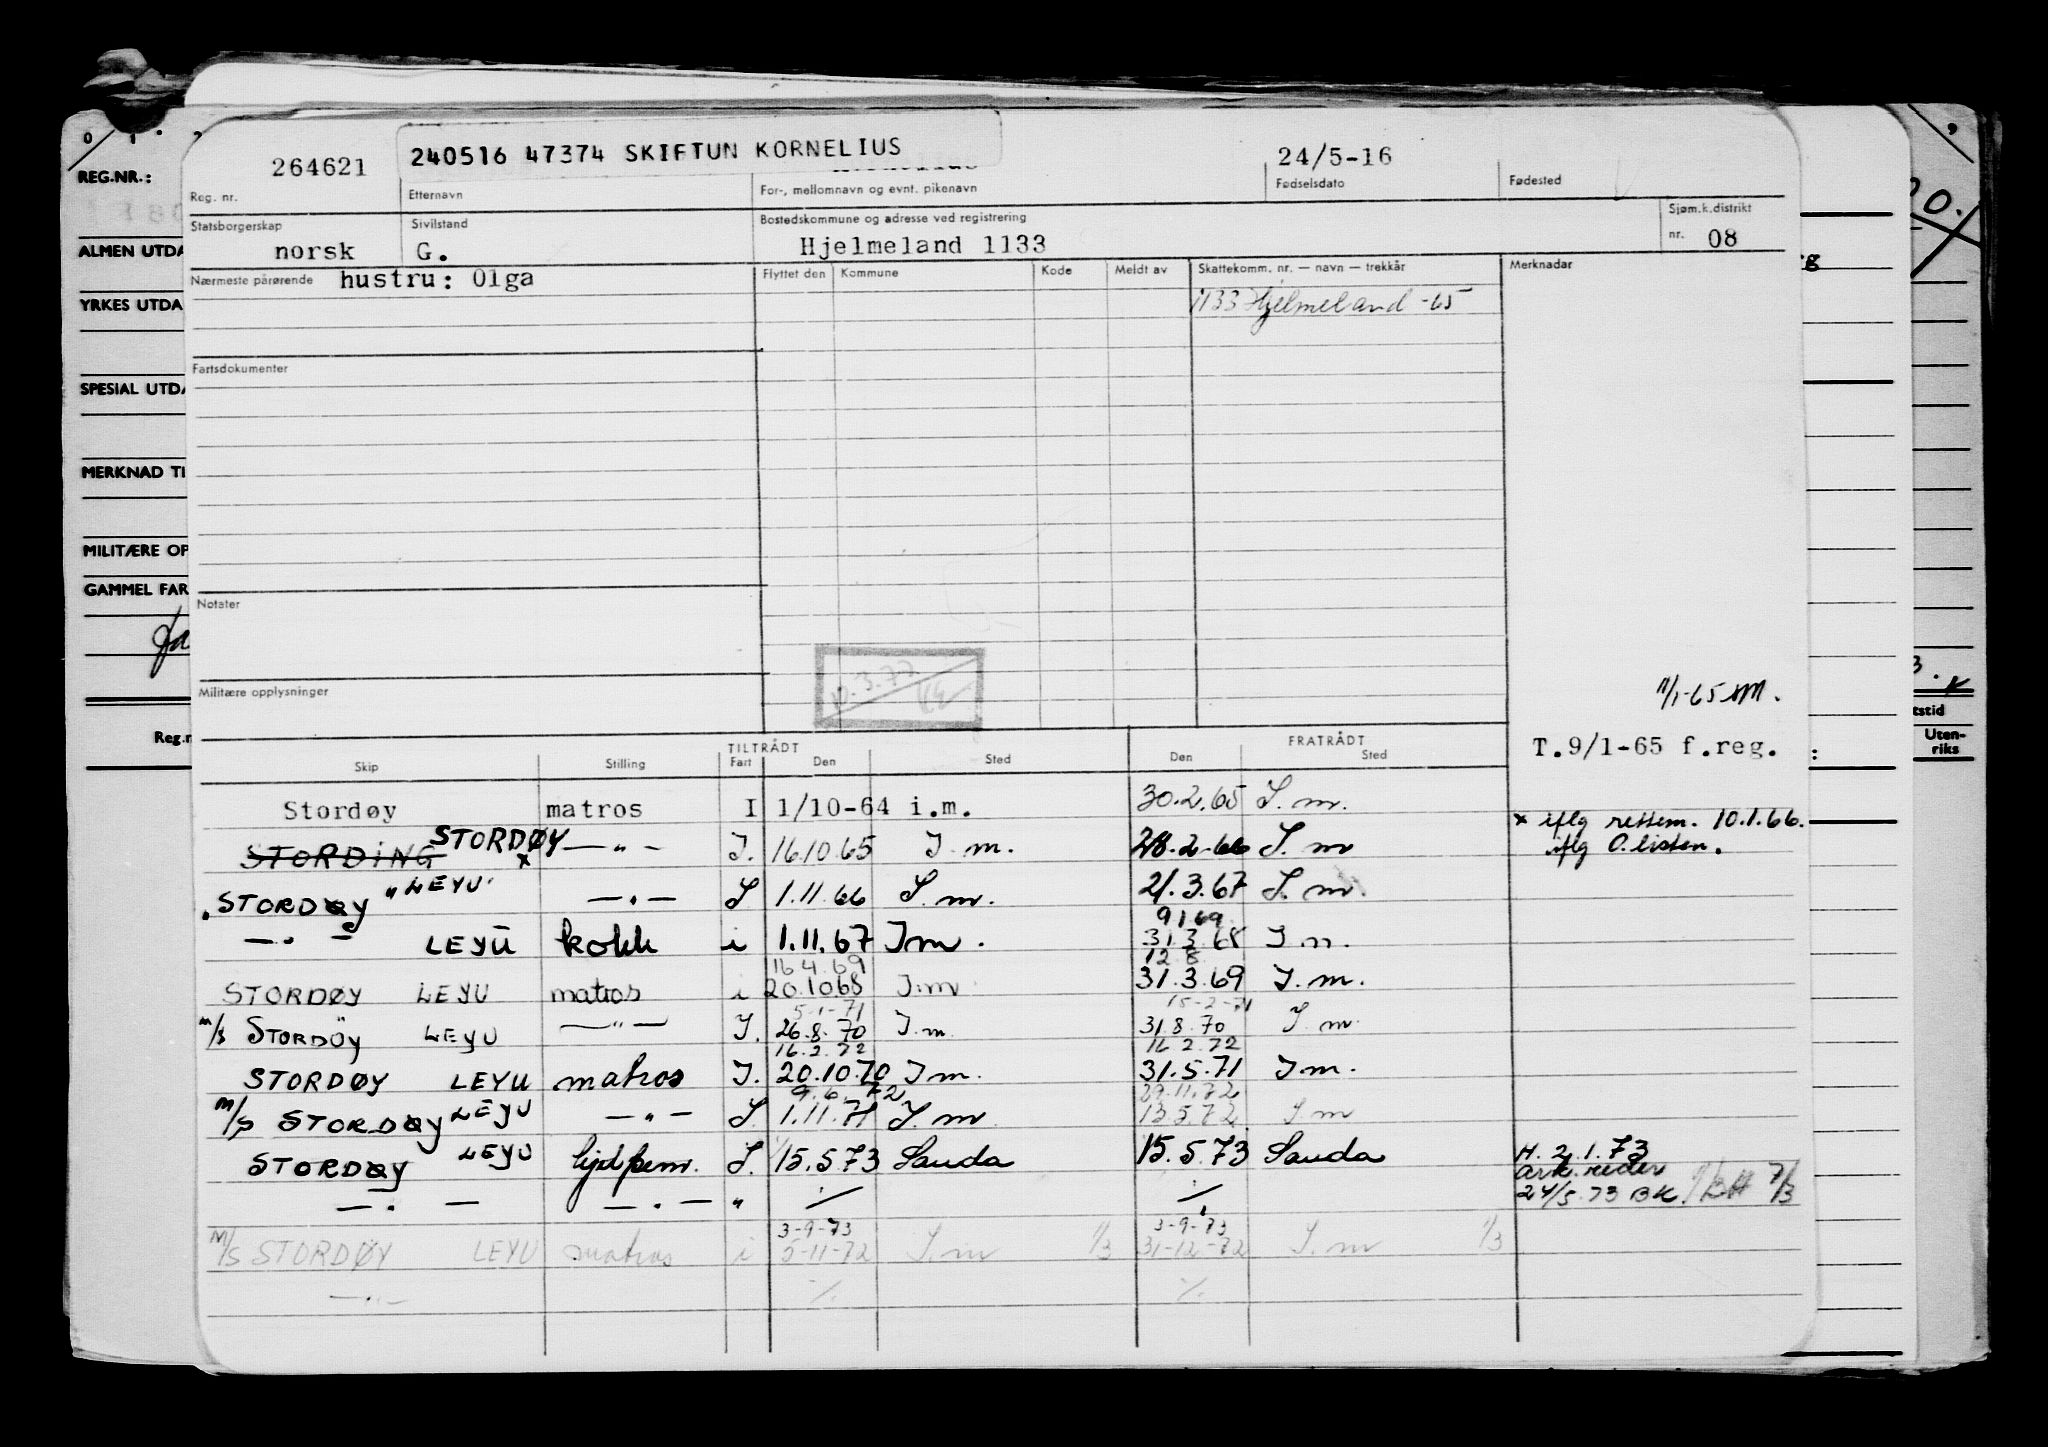 REG.NR.:
ALMEN UTDA
YRKES UTDA
SPESIAL UTDA
MERKNAD TI
MILITÆRE OP
GAMMEL FAR
Reg.n
264621 240516 47374 SKIFTUN KORNELIUS 24/5-16
Reg. nr. Etternavn For-, mellomnavn og evnt. pikenavn Fødselsdato Fødested
Statsborgerskap Sivilstand Bostedskommune og adresse ved registrering Sjøm.k.distrikt
norsk G. Hjelmeland 1133 nr. 08
Nærmeste pårørende hustru: Olga Flyttet den Kommune Kode Meldt av Skattekomm. nr. — navn — trekkår Merknadar
1133 Hjelmeland -65
Fartsdokumenter
Notater
Militære opplysninger
11/1-65
T.9/1-65 f.reg.
TILTRÅDT FRATRÅDT
Skip Stilling Fart Den Sted Den Sted
Stordøy matros I 1/10-64 i.m. 30.2.65 I.m.
STORDING STORDØY x —"— I. 16.10.65 I m. 28.2.66 I.m x iflg rettem. 10.1.66.
iflg O.listen.
STORDØY "LEYU" —"— I 1.11.66 I.m. 21.3.67 I.m.
9 1 69
—"— LEYU kokk i 1.11.67 Im. 31.3.68 I.m.
16 4.69 12.8.
STORDØY LEYU matros i 20.10.68 I.m 31.3.69 I.m.
5-1-71 15-2-71
M/S STORDÖY LEYU —"— I. 26.8.70 I.m. 31.8.70 I m.
16.2.72 16 2.72
STORDØY LEYU matros I. 20.10.70 I m. 31.5.71 I m.
9.6.72 29.11.72
M/S STORDØY LEYU —"— I. 1.11.71 I.m 13.5.72 I.m
STORDØY LEYU I. 15.5.73 Sauda 15.5.73 Sauda H. 2.1.73
ark. reder
—"— —"— " ./. ./. 24/5.73 BK 7/3
3-9-73 3-9-73
M/S STORDØY LEYU matros i 5-11-72 I.m 1/3 31-12-72 I.m 1/3
—"— ./. ./.
tstid
Uten-
riks